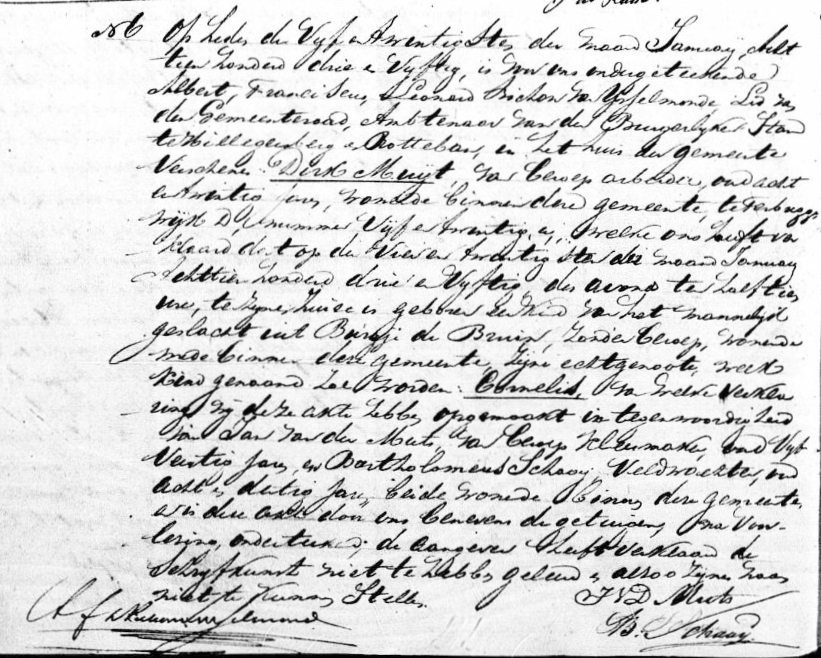 N 6 Op heden den Vyf en twintigsten der maand January, Acht
tien honderd drie en Vyftig, is voor ons ondergeteekende
Albert, Franciscus, Leonard Bichon van Ysselmonde, Lid van
den Gemeenteraad Ambtenaar van den Burgerlyken Stand
te Hillegersberg en Rotteban, in het huis der gemeente
Verschenen Dirk Muyt van beroep arbeider, oud acht
en twintig jaren, wonende binnen deze gemeente, te Terbregge
wyk D, nummer Vyf en twintig, a, welke ons heeft ver
klaard dat op den Vier en twintigsten der maand January
Achttien honderd drie en Vyftig, des avond ten half tien
ure, te zynen huize is geboren een Kind van het mannelyk
geslacht uit Burgje de Bruin, zonder beroep, wonende
mede binnen deze gemeente, zyne echtgenoote, welk
Kind genaamd zal worden: Cornelis, van welke verkla
ring wy deze akte hebben opgemaakt in tegenwoordigheid
van Jan van der Muts, van beroep Kleermaker, oud Vyf
Veertig jaren, en Bartholomeus Schaay Veldwachter, oud
acht en dertig jaren, beide wonende binnen deze gemeente
en is deze akte door ons benevens de getuigen, na voor-
lezing, onderteekend; de aangever heeft verklaard de
Schryfkunst niet te hebben geleerd en alzoo zynen naam
niet te kunnen Stellen.
J V D Muts
B. Schaay.